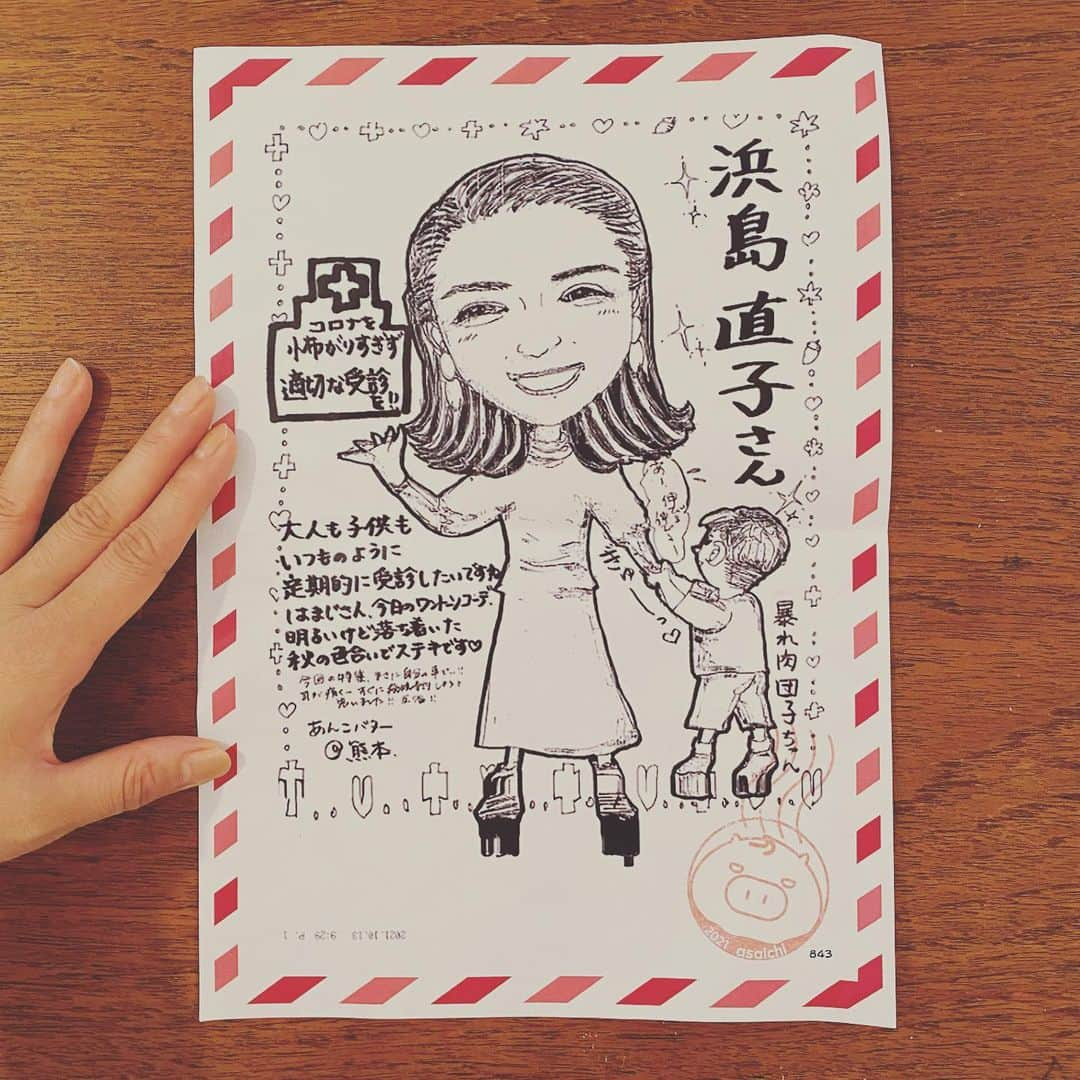 浜島 直子さん
コロナを
怖がりすぎず
適切な受診
を!!
大人も子供も
いつものように
定期的に受診したいですね
はまじさん、今日のワントーンコーデ、
明るいけど落ち着いた
秋の色合いでステキです♡
今回の特集、まさに自分の事で…!!
あんこバター
@熊本.
ぎゅ
暴れ肉団子ちゃん
2021 asaichi
843
2021.10.13 9:29 P. 1